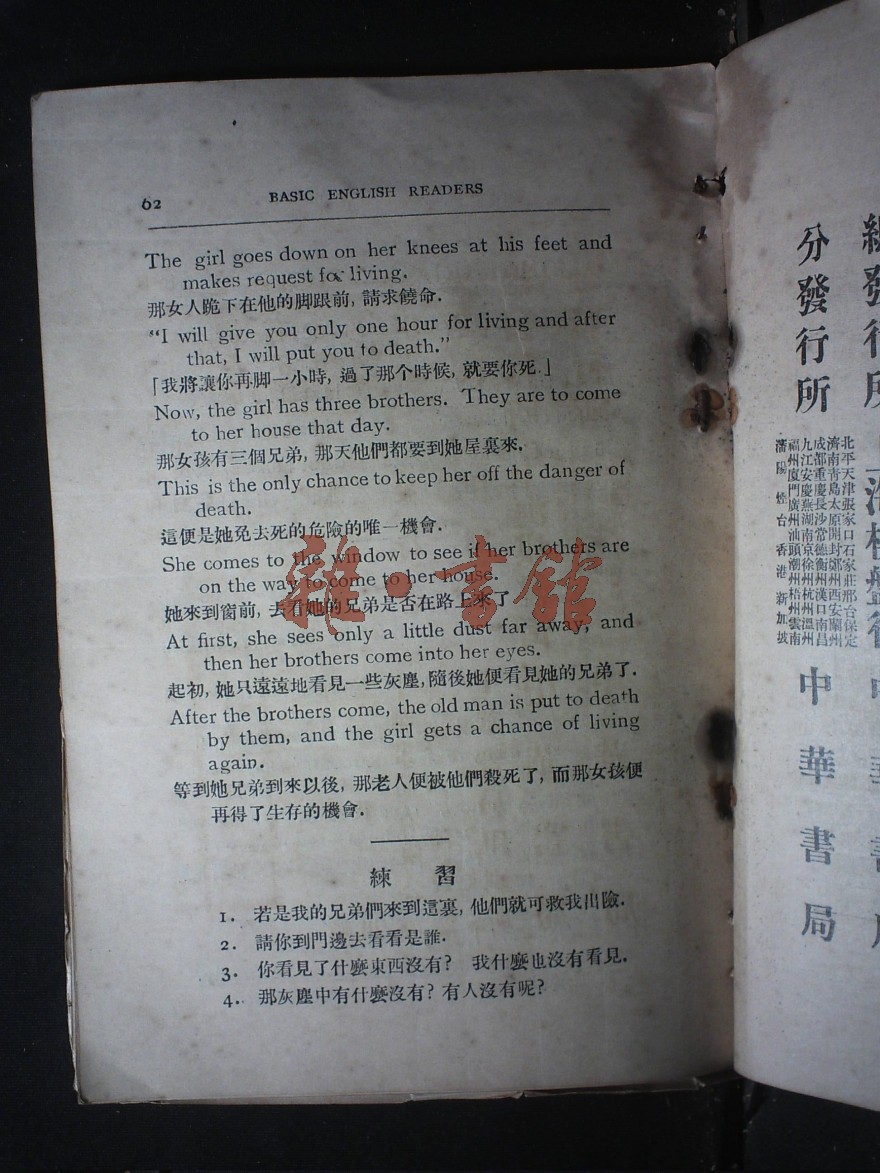 62 BASIC ENGLISH READERS
The girl goes down on her knees at his feet and
makes request for living.
那女人跪下在他的脚跟前, 請求饒命.
“I will give you only one hour for living and after
that, I will put you to death.”
「我將讓你再脚一小時, 過了那个時候, 就要你死.」
Now, the girl has three brothers. They are to come
to her house that day.
那女孩有三個兄弟, 那天他們都要到她屋裏來.
This is the only chance to keep her off the danger of
death.
這便是她免去死的危險的唯一機會.
She comes to the window to see if her brothers are
on the way to come to her house.
她來到窗前, 去看她的兄弟是否在路上來了
At first, she sees only a little dust far away, and
then her brothers come into her eyes.
起初, 她只遠遠地看見一些灰塵, 隨後她便看見她的兄弟了.
After the brothers come, the old man is put to death
by them, and the girl gets a chance of living
again.
等到她兄弟到來以後, 那老人便被他們殺死了, 而那女孩便
再得了生存的機會.
練習
1. 若是我的兄弟們來到這裏, 他們就可救我出險.
2. 請你到門邊去看看是誰.
3. 你看見了什麼東西沒有? 我什麼也沒有看見.
4. 那灰塵中有什麼沒有? 有人沒有呢?
雜·書館
發行所
分發行所
北平天津張家口石家莊邢台保定
濟南青島太原開封鄭州西安蘭州
成都重慶長沙常德衡州漢口南昌
九江安慶蕪湖南京徐州杭州溫州
福州廈門廣州汕頭潮州梧州雲南
瀋陽煙台香港新加坡
中華書局